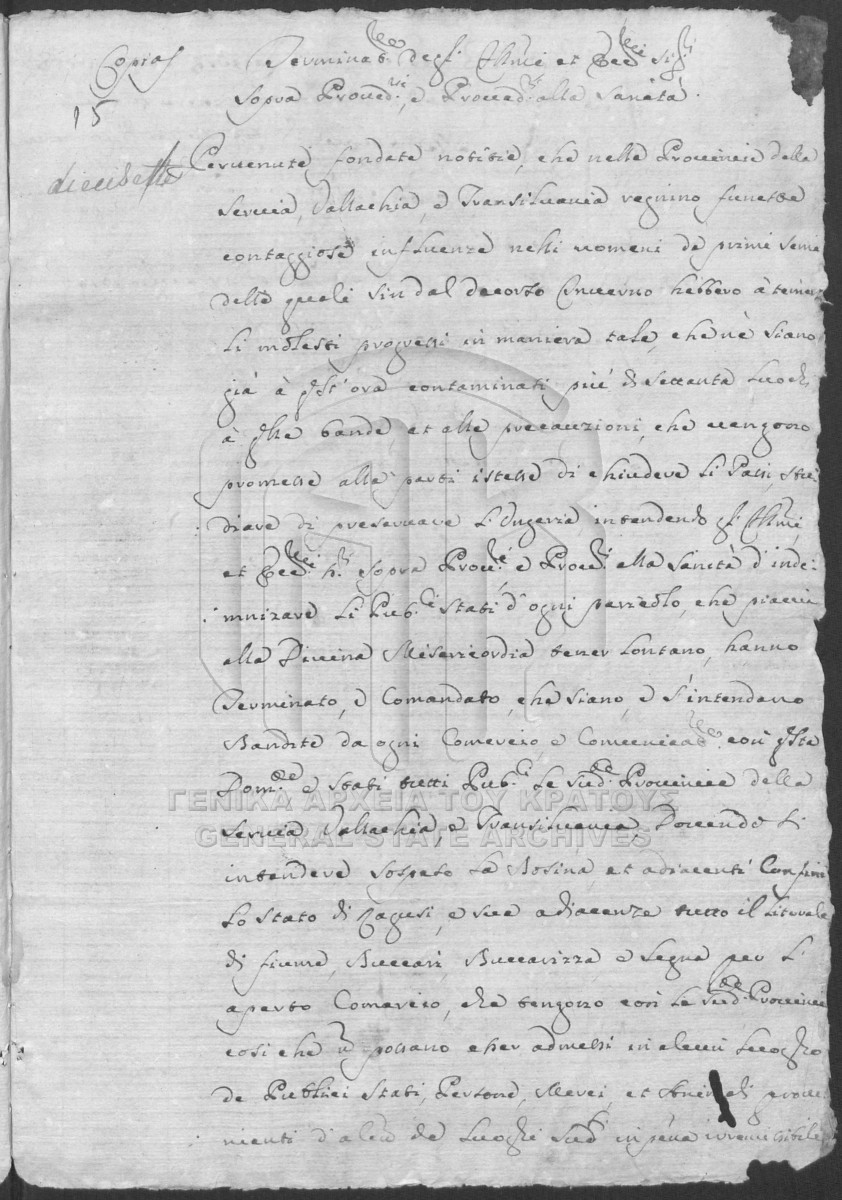 Copia
15
diecisette
Terminaᵇ. degl' Illmi et Ecc.ⁱ Sig.ʳⁱ
sopra Proved.ʳⁱ, e Proved.ʳⁱ alla Sanità.
Pervenute fondate notitie, che nelle Provincie della
Servia, Vallachia, e Transilvania regnino funeste
contaggiose influenze nelli uomeni de primi semi
delle quali sin dal decorso Inverno hebbero à temer
li molesti progressi in maniera tale, che nè siano
già à qst' ora contaminati più di settanta Luochi
à qlle bande, et alle precauzioni, che vengono
promesse alle parti istesse di chiudere li Passi, stu
diare di preservare l'Ongeria intendendo gl' Illmi,
et Ecc.ⁱ sopra Prov.ⁱ e Prov.ⁱ alla Sanità d'inde
mnizare li Pub.ⁱ Stati d'ogni pericolo, che piaccia
alla Divina Misericordia tener lontano, hanno
Terminato, e Comandato, che siano, e s'intendano
Bandite da ogni Comercio, e Comunicaᵇ. con qste
Dom.ᵉ e Stati tutti Pub.ⁱ le sud.ᵉ Provincie della
Servia Vallachia, e Transilvania, Dovendosi
intendere sospeso la Bosina, et adiacenti Confini
lo Stato di Ragusi, e sue adiacenze tutto il Litorale
di fiume, Buccari, Buccarizza, e Segna per l'
aperto Comercio, che tengono con le sud.ᵉ Provincie
così che ñ possano esser admessi in alcun Luocho
de Publici Stati, Persone, Merci, et Animali prove
nienti d'alcũ de Luochi sud.ⁱ in pena irremissibile
ΓΕΝΙΚΑ ΑΡΧΕΙΑ ΤΟΥ ΚΡΑΤΟΥΣ
GENERAL STATE ARCHIVES